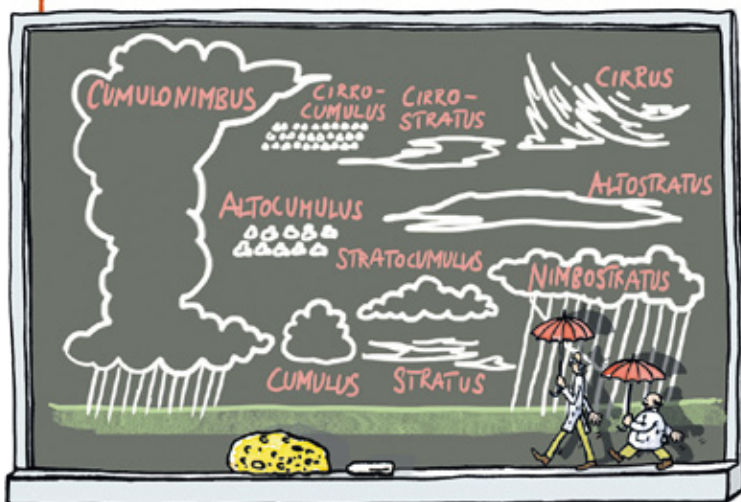 CUMULONIMBUS
CIRRO-
CUMULUS
CIRRO-
STRATUS
CIRRUS
ALTOCUMULUS
ALTOSTRATUS
STRATOCUMULUS
NIMBOSTRATUS
CUMULUS
STRATUS